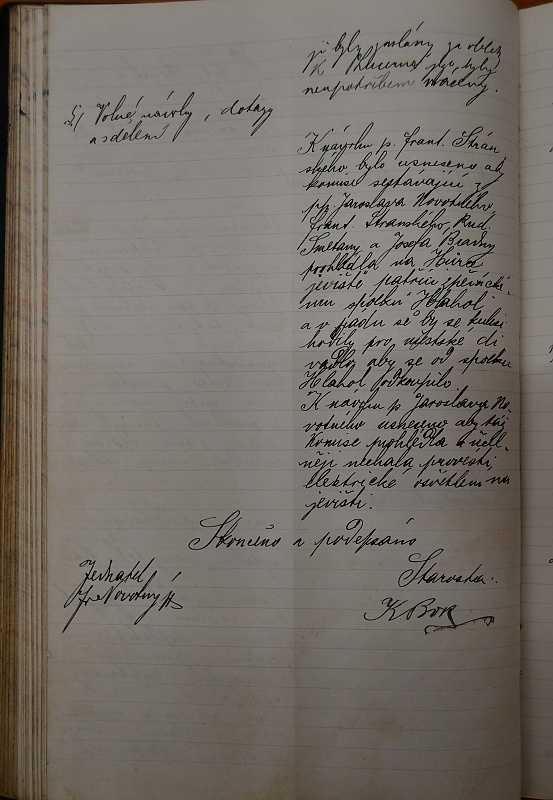 již byly zaslány za oblek
K
neupotřebem vráceny.
5/ Volné návrhy, dotazy
a sdělení
K návrhu p. frant. Strán
ského bylo usneseno aby
komise sestávající z
pp. Jaroslava Novotného
frant. Stranského, Rud.
Smetany a Josefa Bradny
prohlédla na Hůrce
jeviště patřící zpěvácké-
mu spolku Hlahol
a v pádu se by se kulisi
hodily pro městské di
vadlo, aby se od spolku
Hlahol odkoupilo.
K návrhu p. Jaroslava No-
votného usneseno aby táž
komise prohlédla a účel-
něji nechala provésti
elektrické osvětlem na
jevišti.
Skončeno a podepsáno
Jednatel
Jr Novotný
Starosta:
K Bor